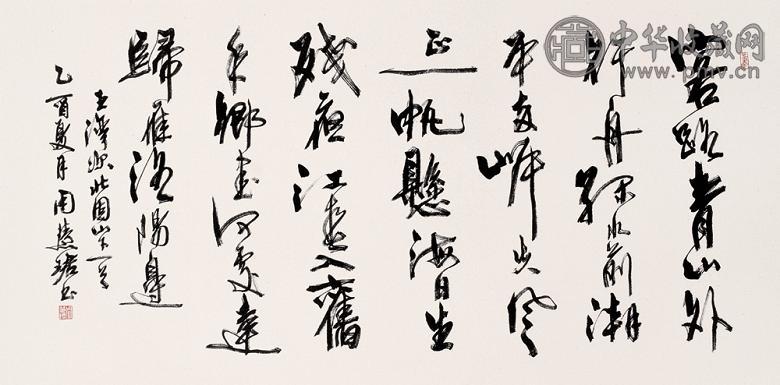 客路青山外
行舟绿水前潮
平两岸失风
正一帆懸海日生
残夜江春入舊
年鄉書何處達
歸雁洛陽邊
王灣次北固山下一首
乙酉夏月周慧珺书
中华收藏网
www.pmv.cn